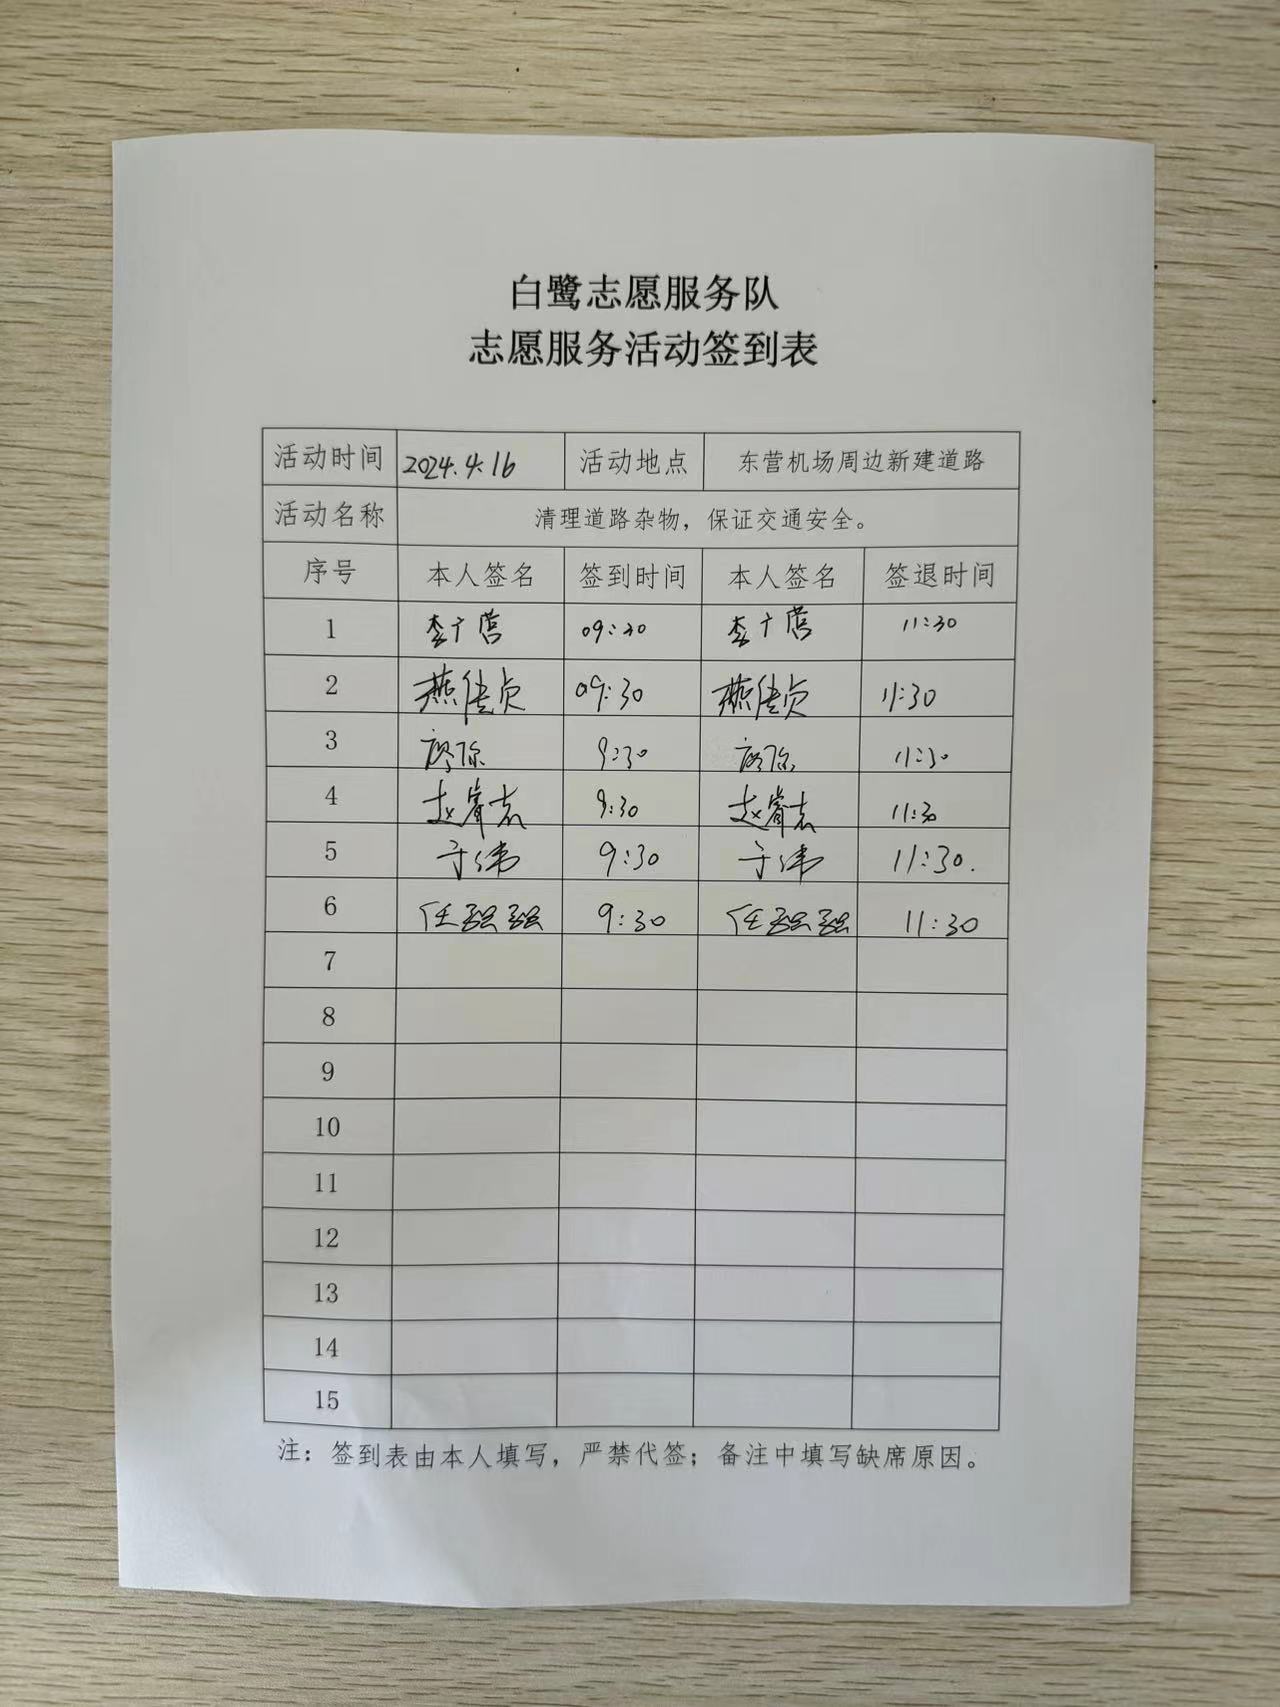 白鹭志愿服务队
志愿服务活动签到表
活动时间 2024.4.16 活动地点 东营机场周边新建道路
活动名称 清理道路杂物，保证交通安全。
序号 本人签名 签到时间 本人签名 签退时间
1 李广营 09:30 李广营 11:30
2 燕佳贞 09:30 燕佳贞 11:30
3 9:30 11:30
4 赵睿志 9:30 赵睿志 11:30
5 于伟 9:30 于伟 11:30.
6 任强强 9:30 任强强 11:30
7
8
9
10
11
12
13
14
15
注：签到表由本人填写，严禁代签；备注中填写缺席原因。